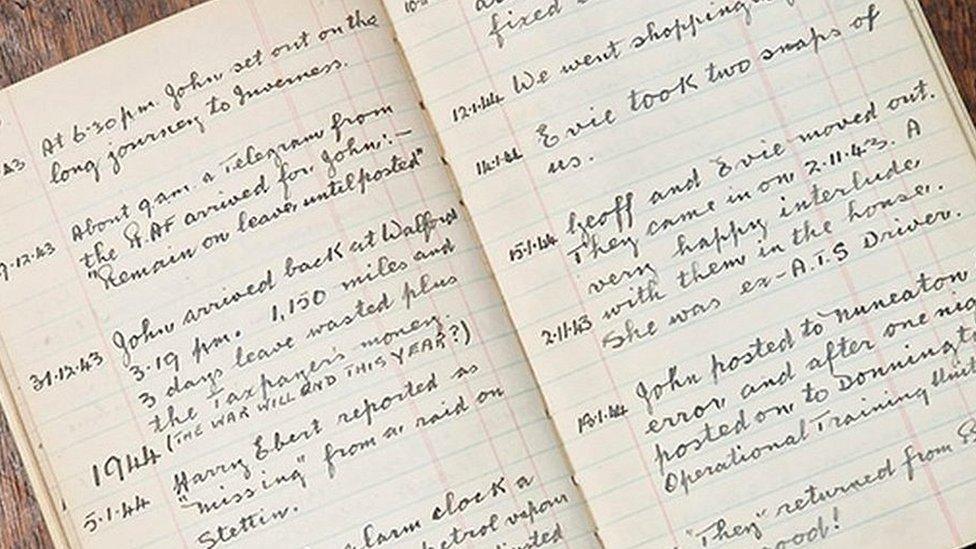 43 At 6.30 p.m. John set out on the
long journey to Inverness.
9.12.43 About 9 am. a Telegram from
the R.AF arrived for John:-
"Remain on leave, until posted"
31.12.43 John arrived back at Walford
3.19 pm. 1,150 miles and
3 days leave wasted plus
the Taxpayer's money.
1944 (THE WAR WILL END THIS YEAR?)
5.1.44 Harry Ebert reported as
"missing" from a raid on
Stettin.
alarm clock a
petrol vapour
fixed
12.1.44 We went shopping
14.1.44 Evie took two snaps of
us.
15.1.44 Geoff and Evie moved out.
They came in on 2.11.43. A
very happy interlude,
2.11.43 with them in the house.
She was ex-A.T.S Driver.
18.1.44 John posted to Nuneaton
error, and after one
posted on, to
Operational Training Unit
"They" returned from
good!